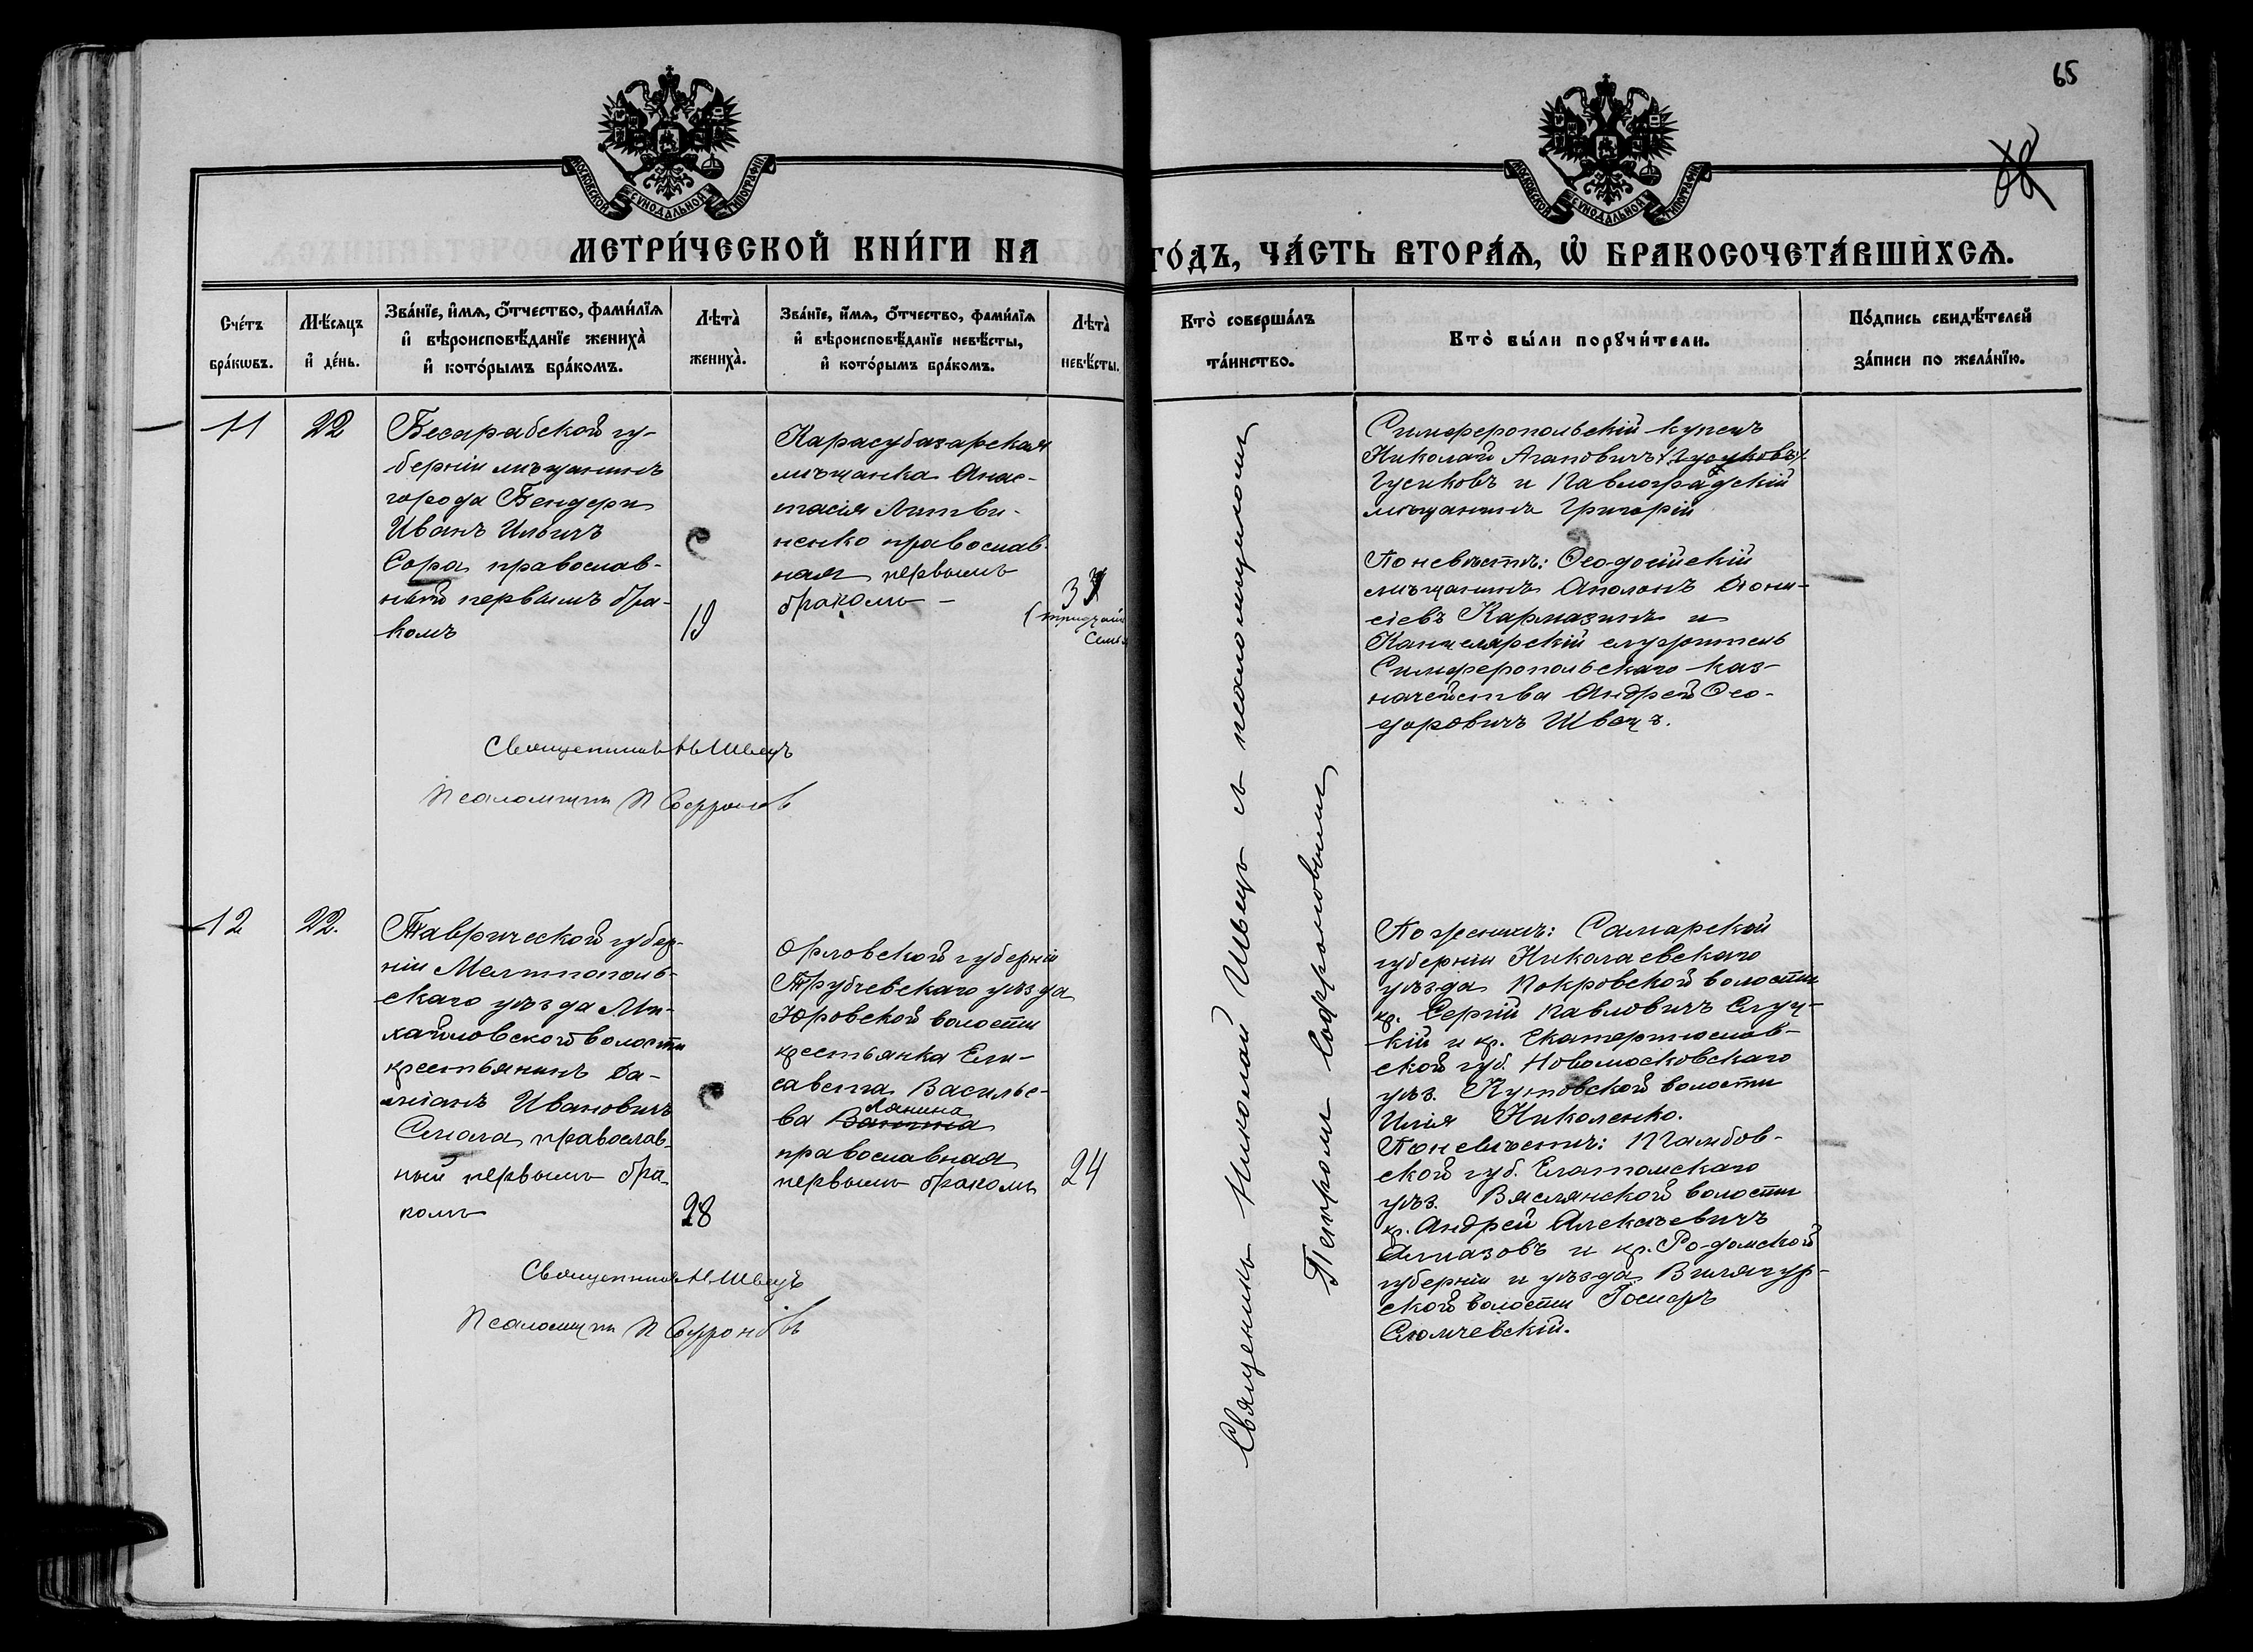 65
МОСКОВСКОЙ СѴНОДАЛЬНОЙ ТИПОГРАФІИ
МОСКОВСКОЙ СѴНОДАЛЬНОЙ ТИПОГРАФІИ
МЕТРИ́ЧЕСКОЙ КНИ́ГИ НА
ГО́ДЪ, ЧА́СТЬ ВТОРА́Ѧ, Ѡ҆ БРАКОСОЧЕТА́ВШИХСѦ.
Сче́тъ
бра́кѡвъ.
Мѣ́сяцъ
и҆ де́нь.
Зва́нїе, и҆́мѧ, ѻ҆́тчество, фами́лїѧ
и҆ вѣроисповѣ́данїе жениха̀
и҆ кото́рымъ бра́комъ.
Лѣта̀
жениха̀.
Зва́нїе, и҆́мѧ, ѻ҆́тчество, фами́лїѧ
и҆ вѣроисповѣ́данїе невѣ́сты,
и҆ кото́рымъ бра́комъ.
Лѣта̀
невѣ́сты.
Кто̀ соверша́лъ
та́инство.
Кто̀ бы́ли порꙋчи́тели.
По́дпись свидѣ́телей
за́писи по жела́нїю.
11
22
Бесарабской гу-
берніи мѣщанинъ
города Бендеры
Иванъ Ильичъ
Сора православ-
ный первымъ бра-
комъ
19
Карасубазарская
мѣщанка Анас-
тасія Литви-
ненко православ-
ная первымъ
бракомъ –
37
(тридцать
семь
Священникъ Н Швецъ
Псаломщикъ П Софроновъ
Священникъ Николай Швецъ съ псаломщикомъ
Петромъ Софроновымъ
Симферопольскій купецъ
Николай Агаповичъ (Гусуковъ)
Гусиковъ и Павлоградскій
мѣщанинъ Григорій
По невѣстѣ: Ѳеодосійскій
мѣщанинъ Аполонъ Діони-
сіевъ Кармазинъ и
Канцелярскій служитель
Симферопольскаго каз-
начейства Андрей Ѳео-
доровичъ Швецъ.
12
22.
Таврической губер-
ніи Мелитополь-
скаго уѣзда Ми-
хайловской волости
крестьянинъ Да-
міанъ Ивановичъ
Смола православ-
ный первымъ бра-
комъ
28
Орловской губерніи
Трубчевскаго уѣзда
Юровской волости
крестьянка Ели-
савета Василье-
Лянина
ва Ванина
православная
первымъ бракомъ
24
Священникъ Н. Швецъ
Псаломщикъ П Софроновъ
По женихѣ: Самарской
губерніи Николаевскаго
уѣзда Покровской волости
кр. Сергій Павловичъ Слуц-
кій и кр. Екатеринослав-
ской губ. Новомосковскаго
уѣз. волости
Илія Николенко.
По невѣстѣ: Тамбов-
ской губ. Елатомскаго
уѣз. Вяслянской волости
кр. Андрей Алексѣевичъ
Алмазовъ и кр. Радомской
губерніи и уѣзда
ской волости